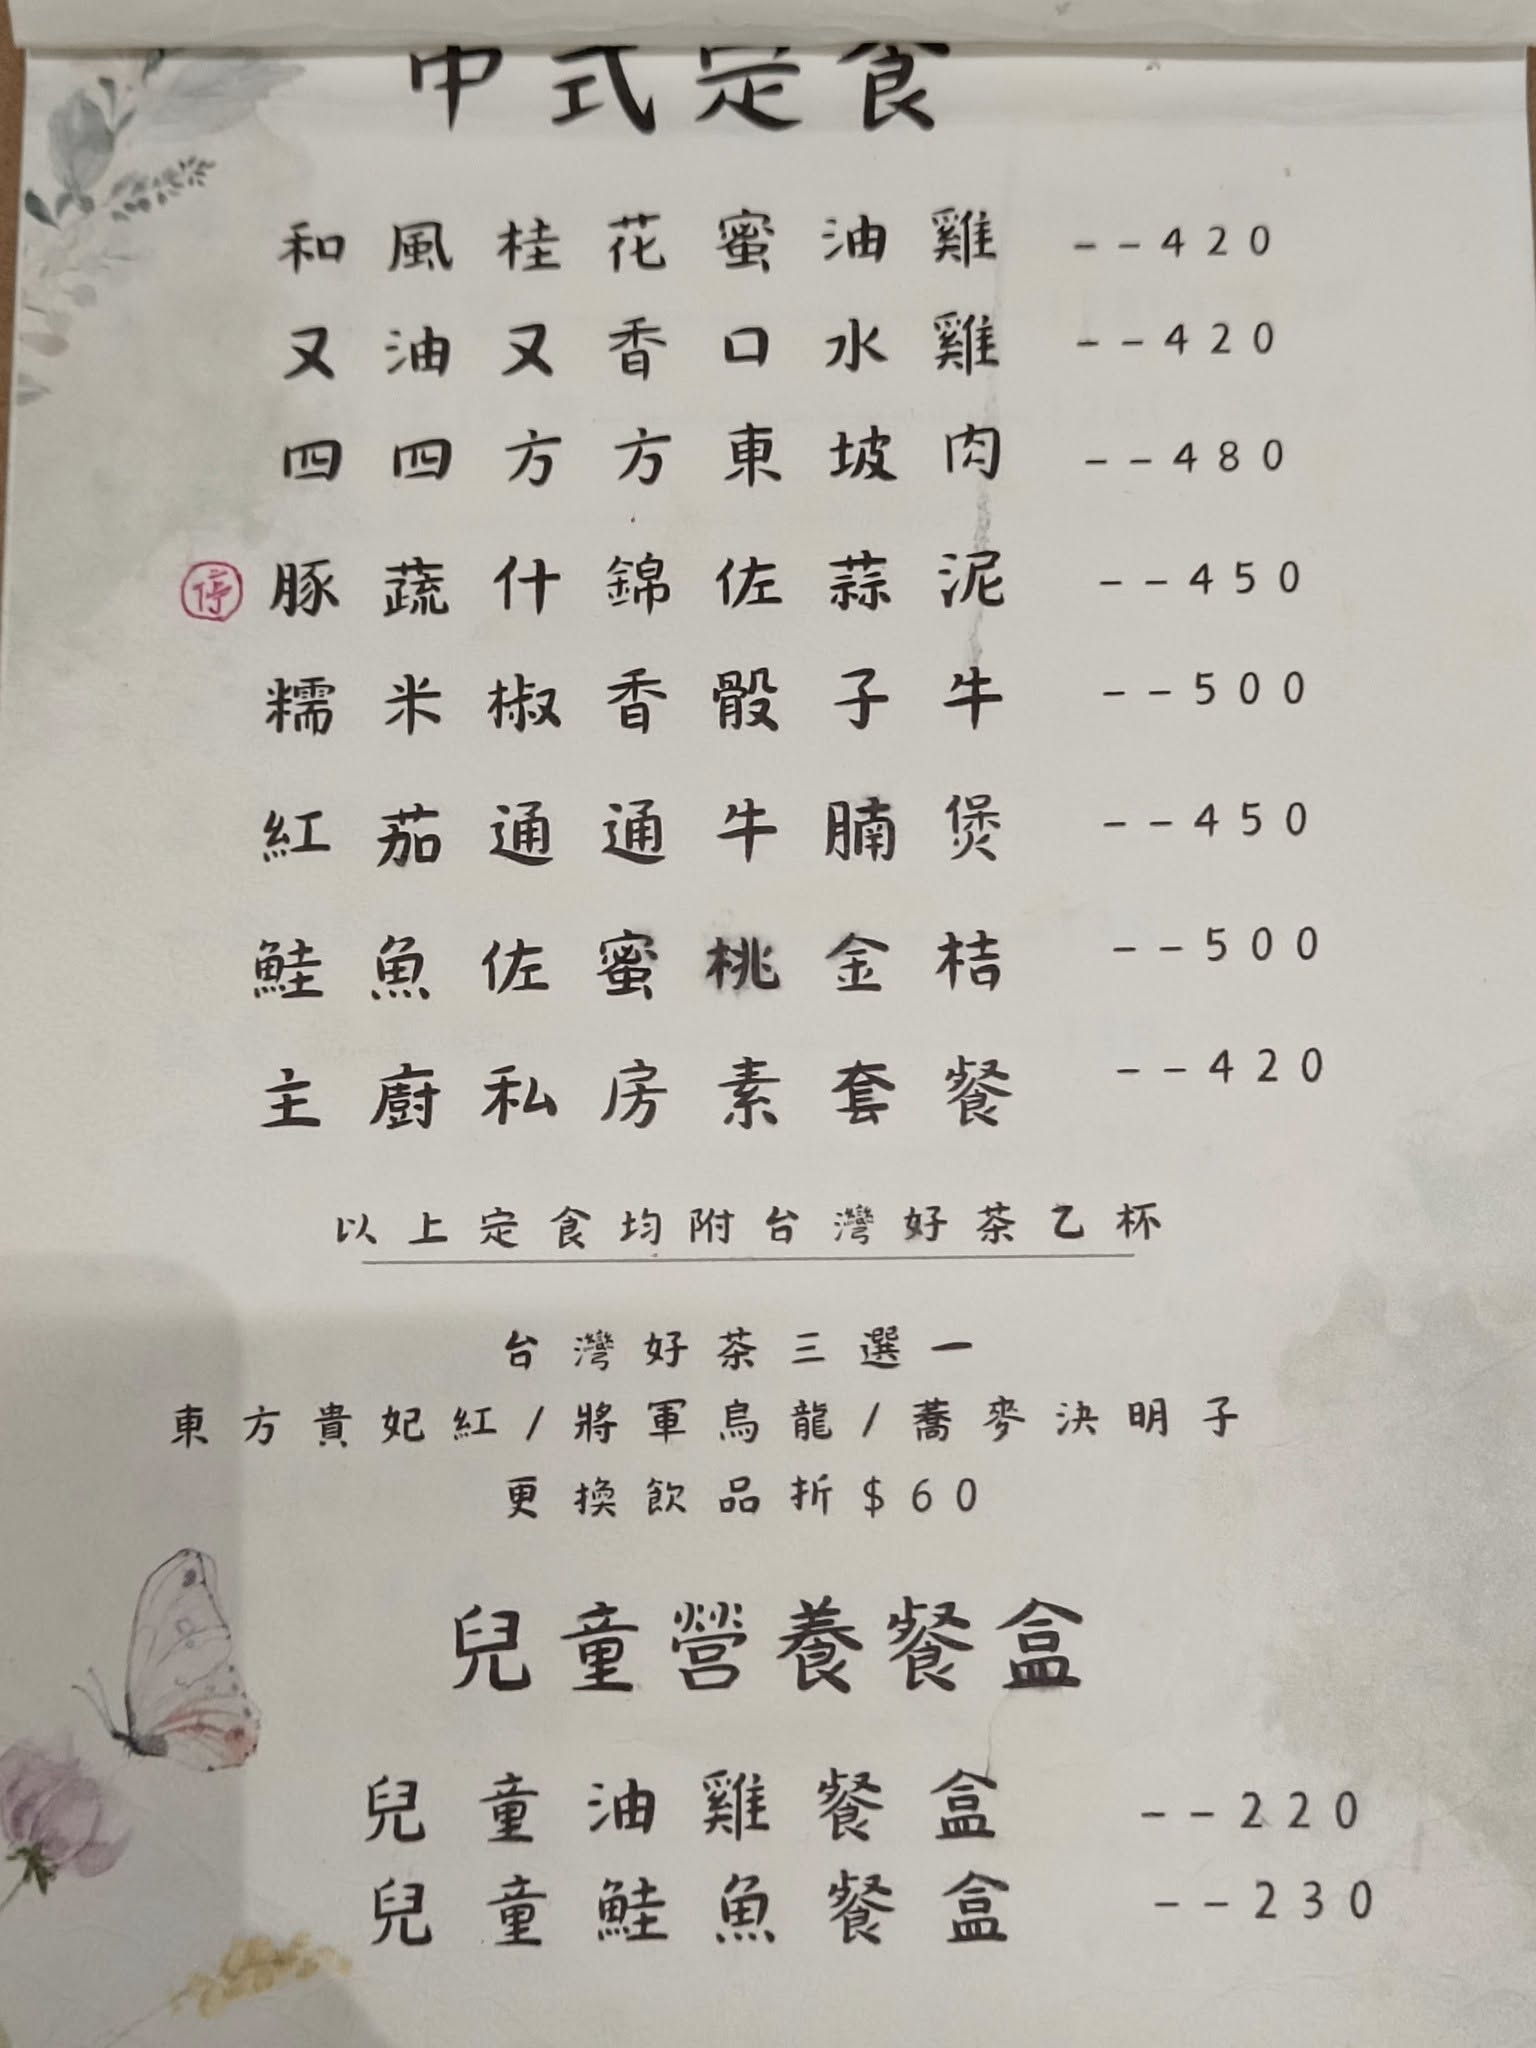 中式定食
和風桂花蜜油雞 --420
又油又香口水雞 --420
四四方方東坡肉 --480
停 豚蔬什錦佐蒜泥 --450
糯米椒香骰子牛 --500
紅茄通通牛腩煲 --450
鮭魚佐蜜桃金桔 --500
主廚私房素套餐 --420
以上定食均附台灣好茶乙杯
台灣好茶三選一
東方貴妃紅/將軍烏龍/蕎麥決明子
更換飲品折$60
兒童營養餐盒
兒童油雞餐盒 --220
兒童鮭魚餐盒 --230